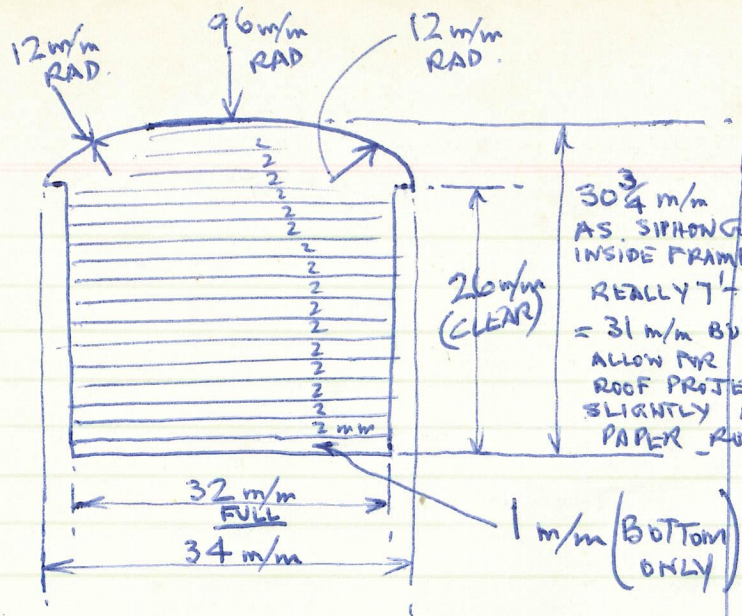 12 m/m
RAD.
96 m/m
RAD
12 m/m
RAD.
2
2
2
2
2
2
2
2
2
2
2
2
2
2
2 mm
26 m/m
(CLEAR)
30 3/4 m/m
AS SIPHONG
INSIDE FRAM
REALLY 7'
= 31 m/m BU
ALLOW FOR
ROOF PROJE
SLIGHTLY
PAPER RO
32 m/m
FULL
34 m/m
1 m/m (BOTTOM
ONLY)